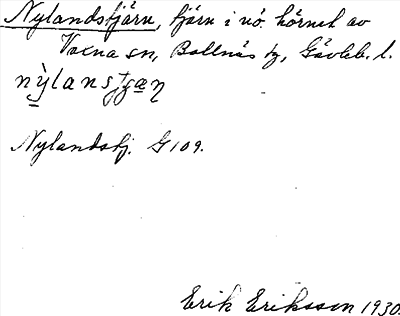 Nylandstjärn, tjärn i nö. hörnet av
Voxna sn, Bollnäs tg, Gävleb. l.
Nylandstj. G 109.
Erik Eriksson 1930.